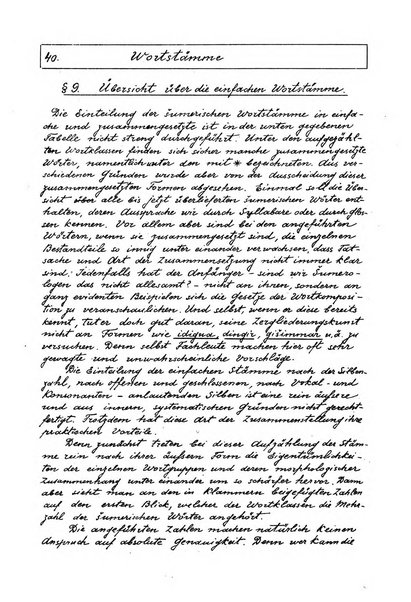 40. Wortstämme
§ 9. Übersicht über die einfachen Wortstämme.
Die Einteilung der sumerischen Wortstämme in einfa-
che und zusammengesetzte ist in der unten gegebenen
Tabelle nicht streng durchgeführt. Unter den aufgezähl-
ten Wortklassen finden sich sicher manche zusammengesetzte
Wörter, namentlich unter den mit * bezeichneten. Aus ver-
schiedenen Gründen wurde aber von der Ausscheidung dieser
zusammengesetzten Formen abgesehen. Einmal soll die Über-
sicht über alle bis jetzt überlieferten sumerischen Wörter ent-
halten, deren Aussprache wir durch Syllabare oder durch Glos-
sen kennen. Vor allem aber sind bei den angeführten
Wörtern, wenn sie zusammengesetzt sind, die einzelnen
Bestandteile so innig unter einander verwachsen, dass Tat-
sache und Art der Zusammensetzung nicht immer klar
sind. Jedenfalls hat der Anfänger – sind wir Sumero-
logen das nicht allesamt? – nicht an ihnen, sondern an
ganz evidenten Beispielen sich die Gesetze der Wortkomposi-
tion zu veranschaulichen. Und selbst, wenn er diese bereits
kennt, tut er doch gut daran, seine Zergliederungskunst
nicht an Formen wie idigna, dingir, gišimmar u.ä. zu
versuchen. Denn selbst Fachleute machen hier oft sehr
gewagte und unwahrscheinliche Vorschläge.
Die Einteilung der einfachen Stämme nach der Silben-
zahl, nach offenen und geschlossenen, nach Vokal- und
Konsonanten – anlautenden Silben ist eine rein äußere
und aus innern, systematischen Gründen nicht gerecht-
fertigt. Trotzdem hat diese Art der Zusammenstellung ihre
praktischen Vorteile.
Denn zunächst treten bei dieser Aufzählung der Stäm-
me rein nach ihrer äußern Form die Eigentümlichkei-
ten der einzelnen Wortgruppen und deren morphologischer
Zusammenhang unter einander um so schärfer hervor. Dann
aber sieht man an den in Klammern beigefügten Zahlen
auf den ersten Blick, welcher der Wortklassen die Mehr-
zahl der sumerischen Wörter angehört.
Die angeführten Zahlen machen natürlich keinen
Anspruch auf absolute Genauigkeit. Denn wer kann die